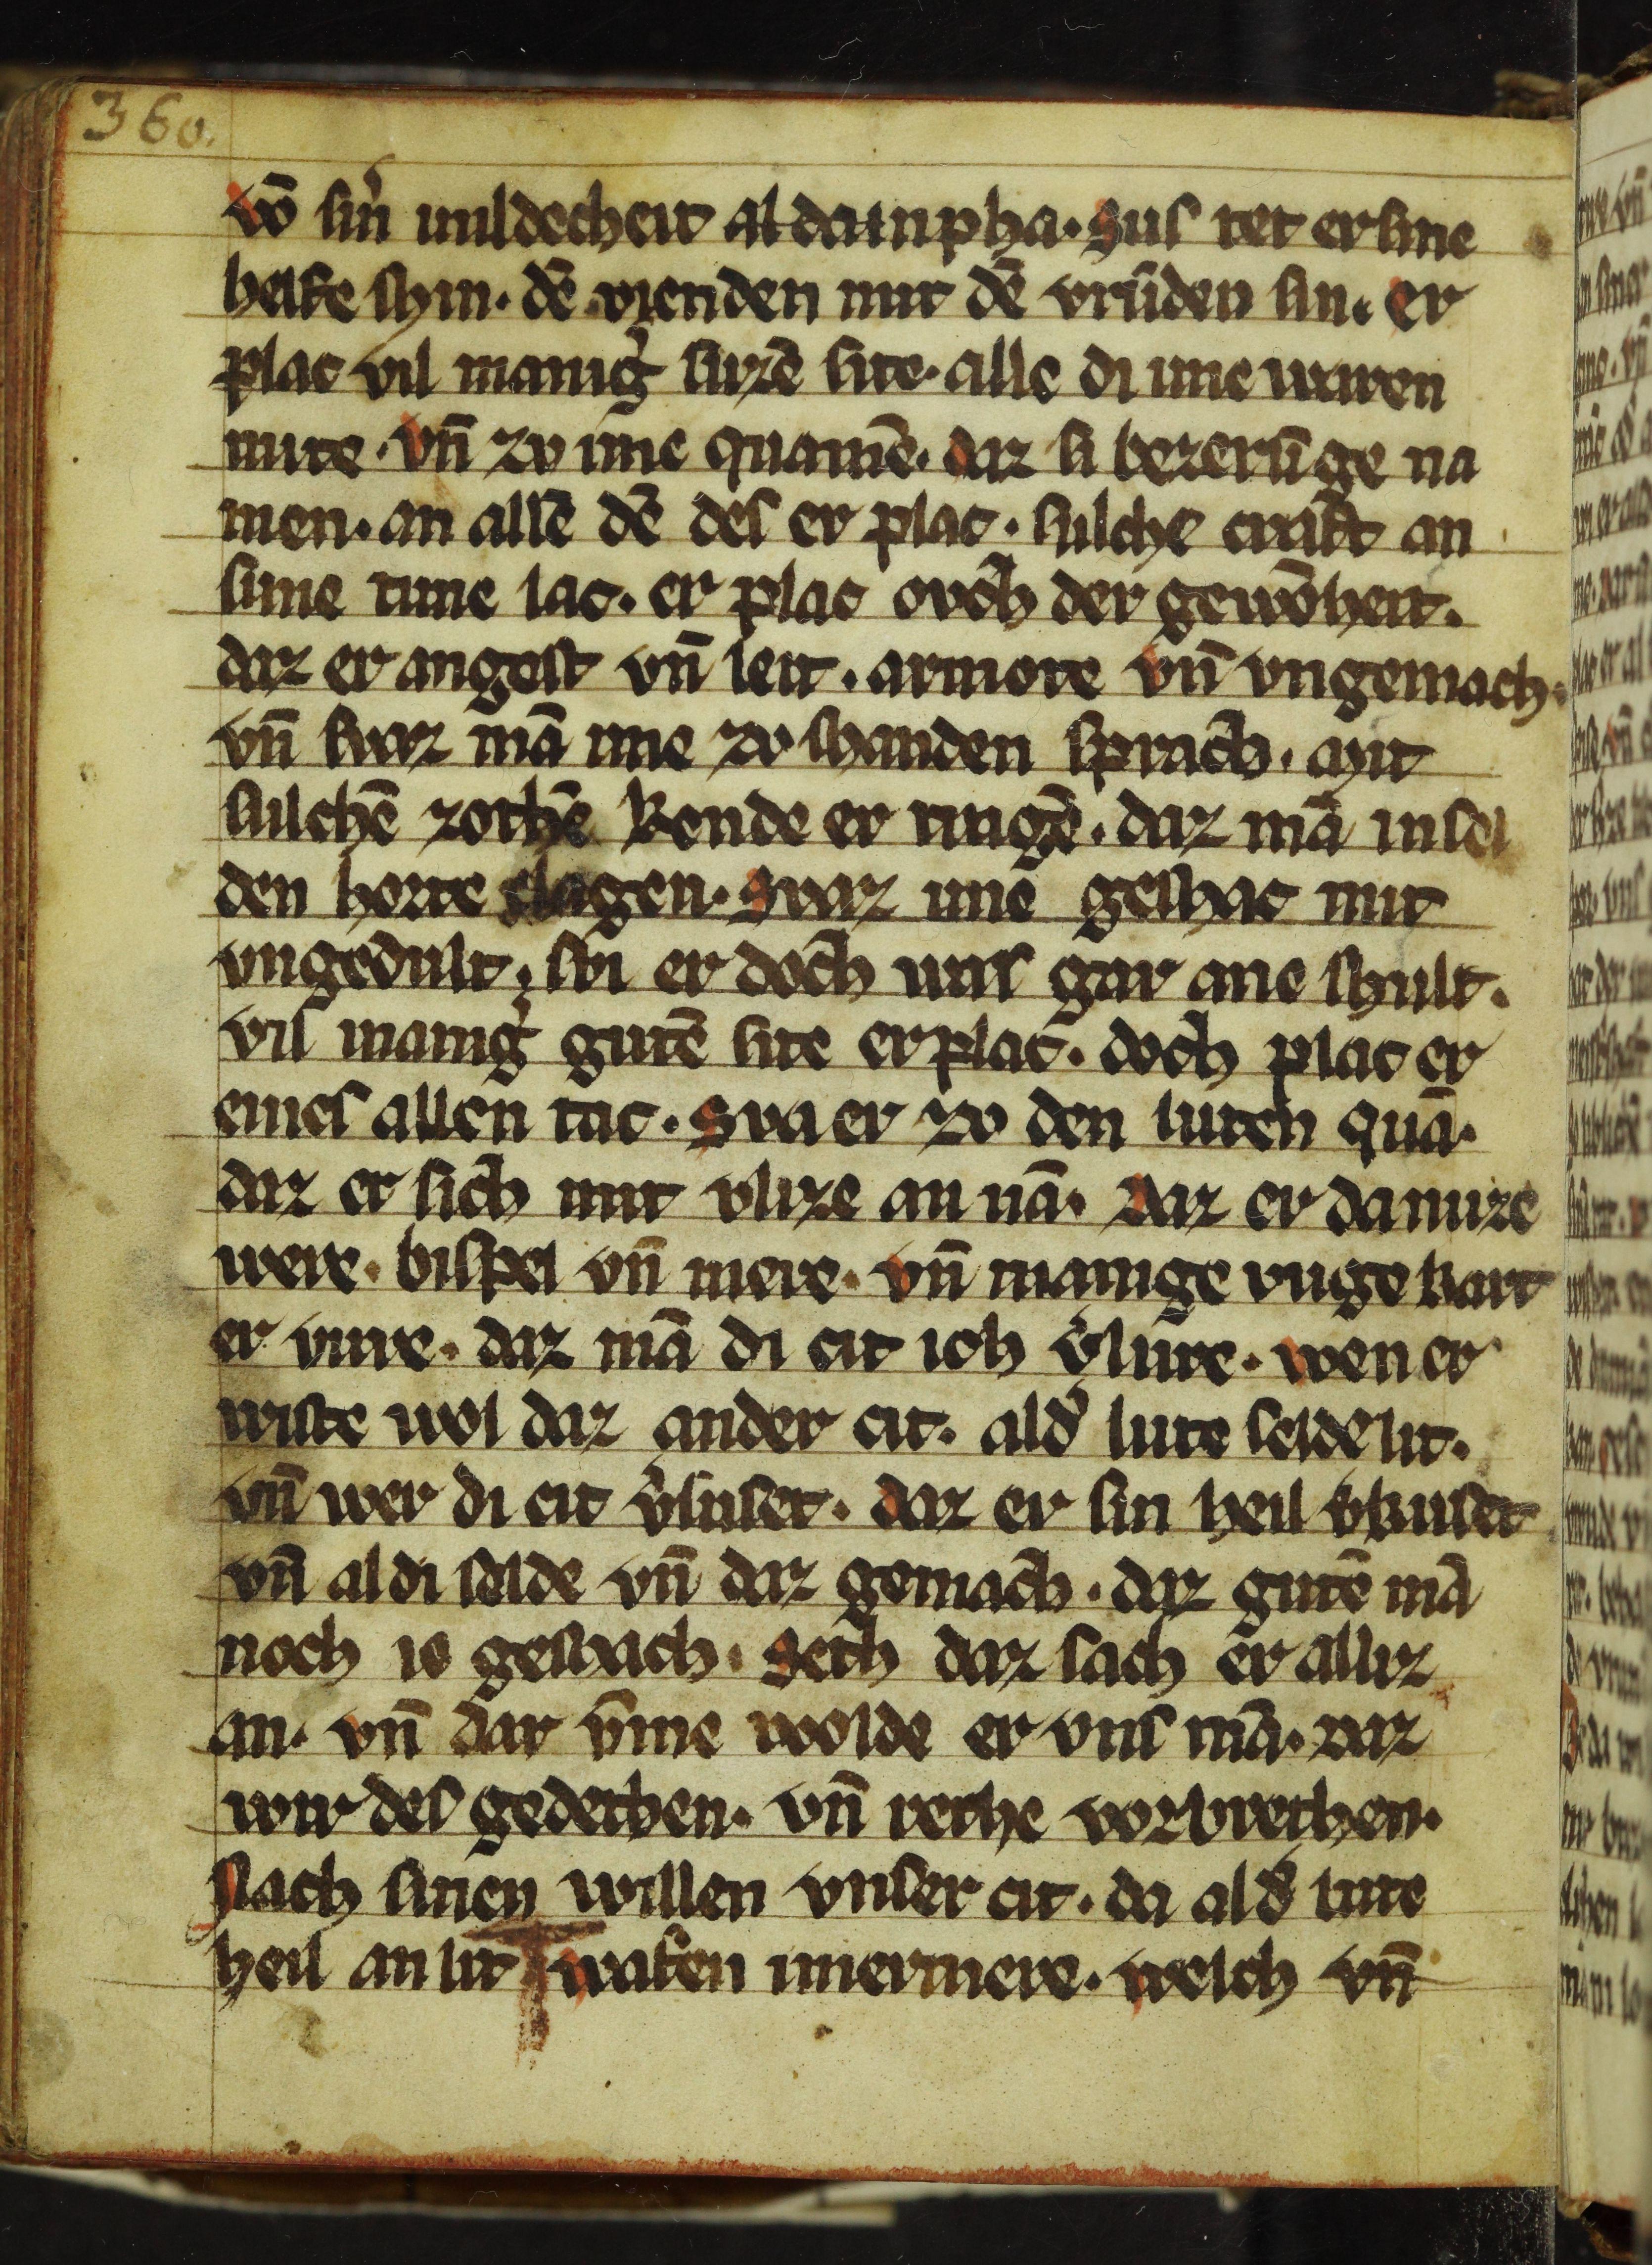 360.
vō sin̕ mildecheit al daniphā. Sus tet er sine
helfe shin. dē vienden mit dē vrūden sin. Er
plac vil manig̕ suzē site. alle di ime waren
mite. vn̄ zv ime quamē. daz si bezerūge na
men. an allē dē des er plac. sulche craft an
sime tune lac. er plac ovch der gewōheit.
daz er angest vn̄ leit. armote vn̄ vngemach.
vn̄ swaz mā ime zv shanden sprach. Mit
sulchē zothē kende er tragē. daz mā in sel
den horte clagen. Swaz ime geshac mit
vngedult. swi er doch was gar ane shult.
vil manig̕ gutē site er plac. doch plac er
eines allen tac. Swa er zv den luten quā.
daz er sich mit vlize an nā. Daz er da nuze
were. bispel vn̄ mere. vn̄ manige vuge kart
er vure. daz mā di cit ich v̕lure. wen er
wiste wol daz an der cit. al d̕ lute selde lit.
vn̄ wer di cit v̕luset. daz er sin heil v̕kuset
vn̄ al di selde vn̄ daz gemach. daz gutē mā
noch ie geshach. Seth daz sach er alliz
an. vn̄ dar v̄me wolde er vns mā. Daz
wir des gedethen. vn̄ rethe vorbrethen.
Nach sinen willen vnser cit. da al d̕ lute
heil an lit wafen imermere. welch vn̄